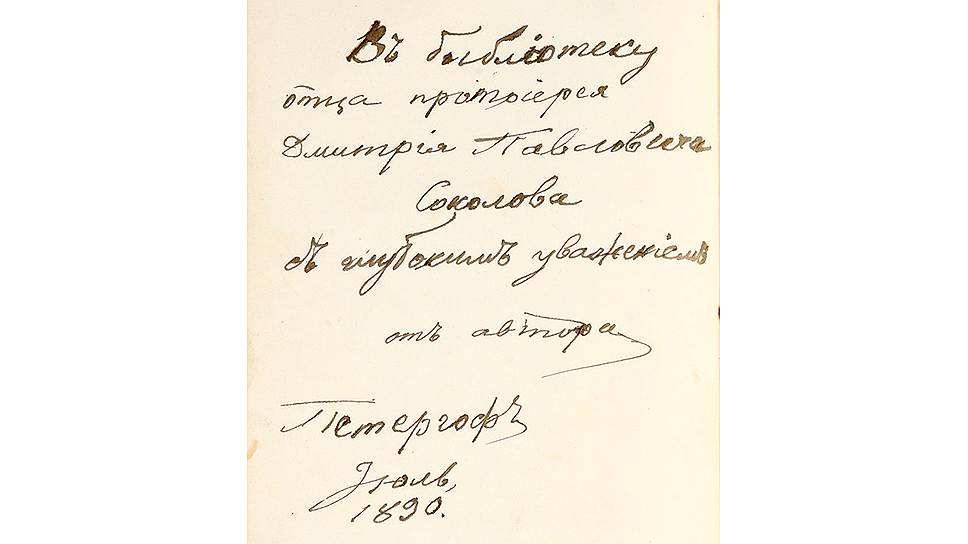 Въ библіотеку
отца протоіерея
Дмитрія Павловича
Соколова
съ глубокимъ уваженіемъ
отъ автора
Петергофъ
Іюль,
1890.